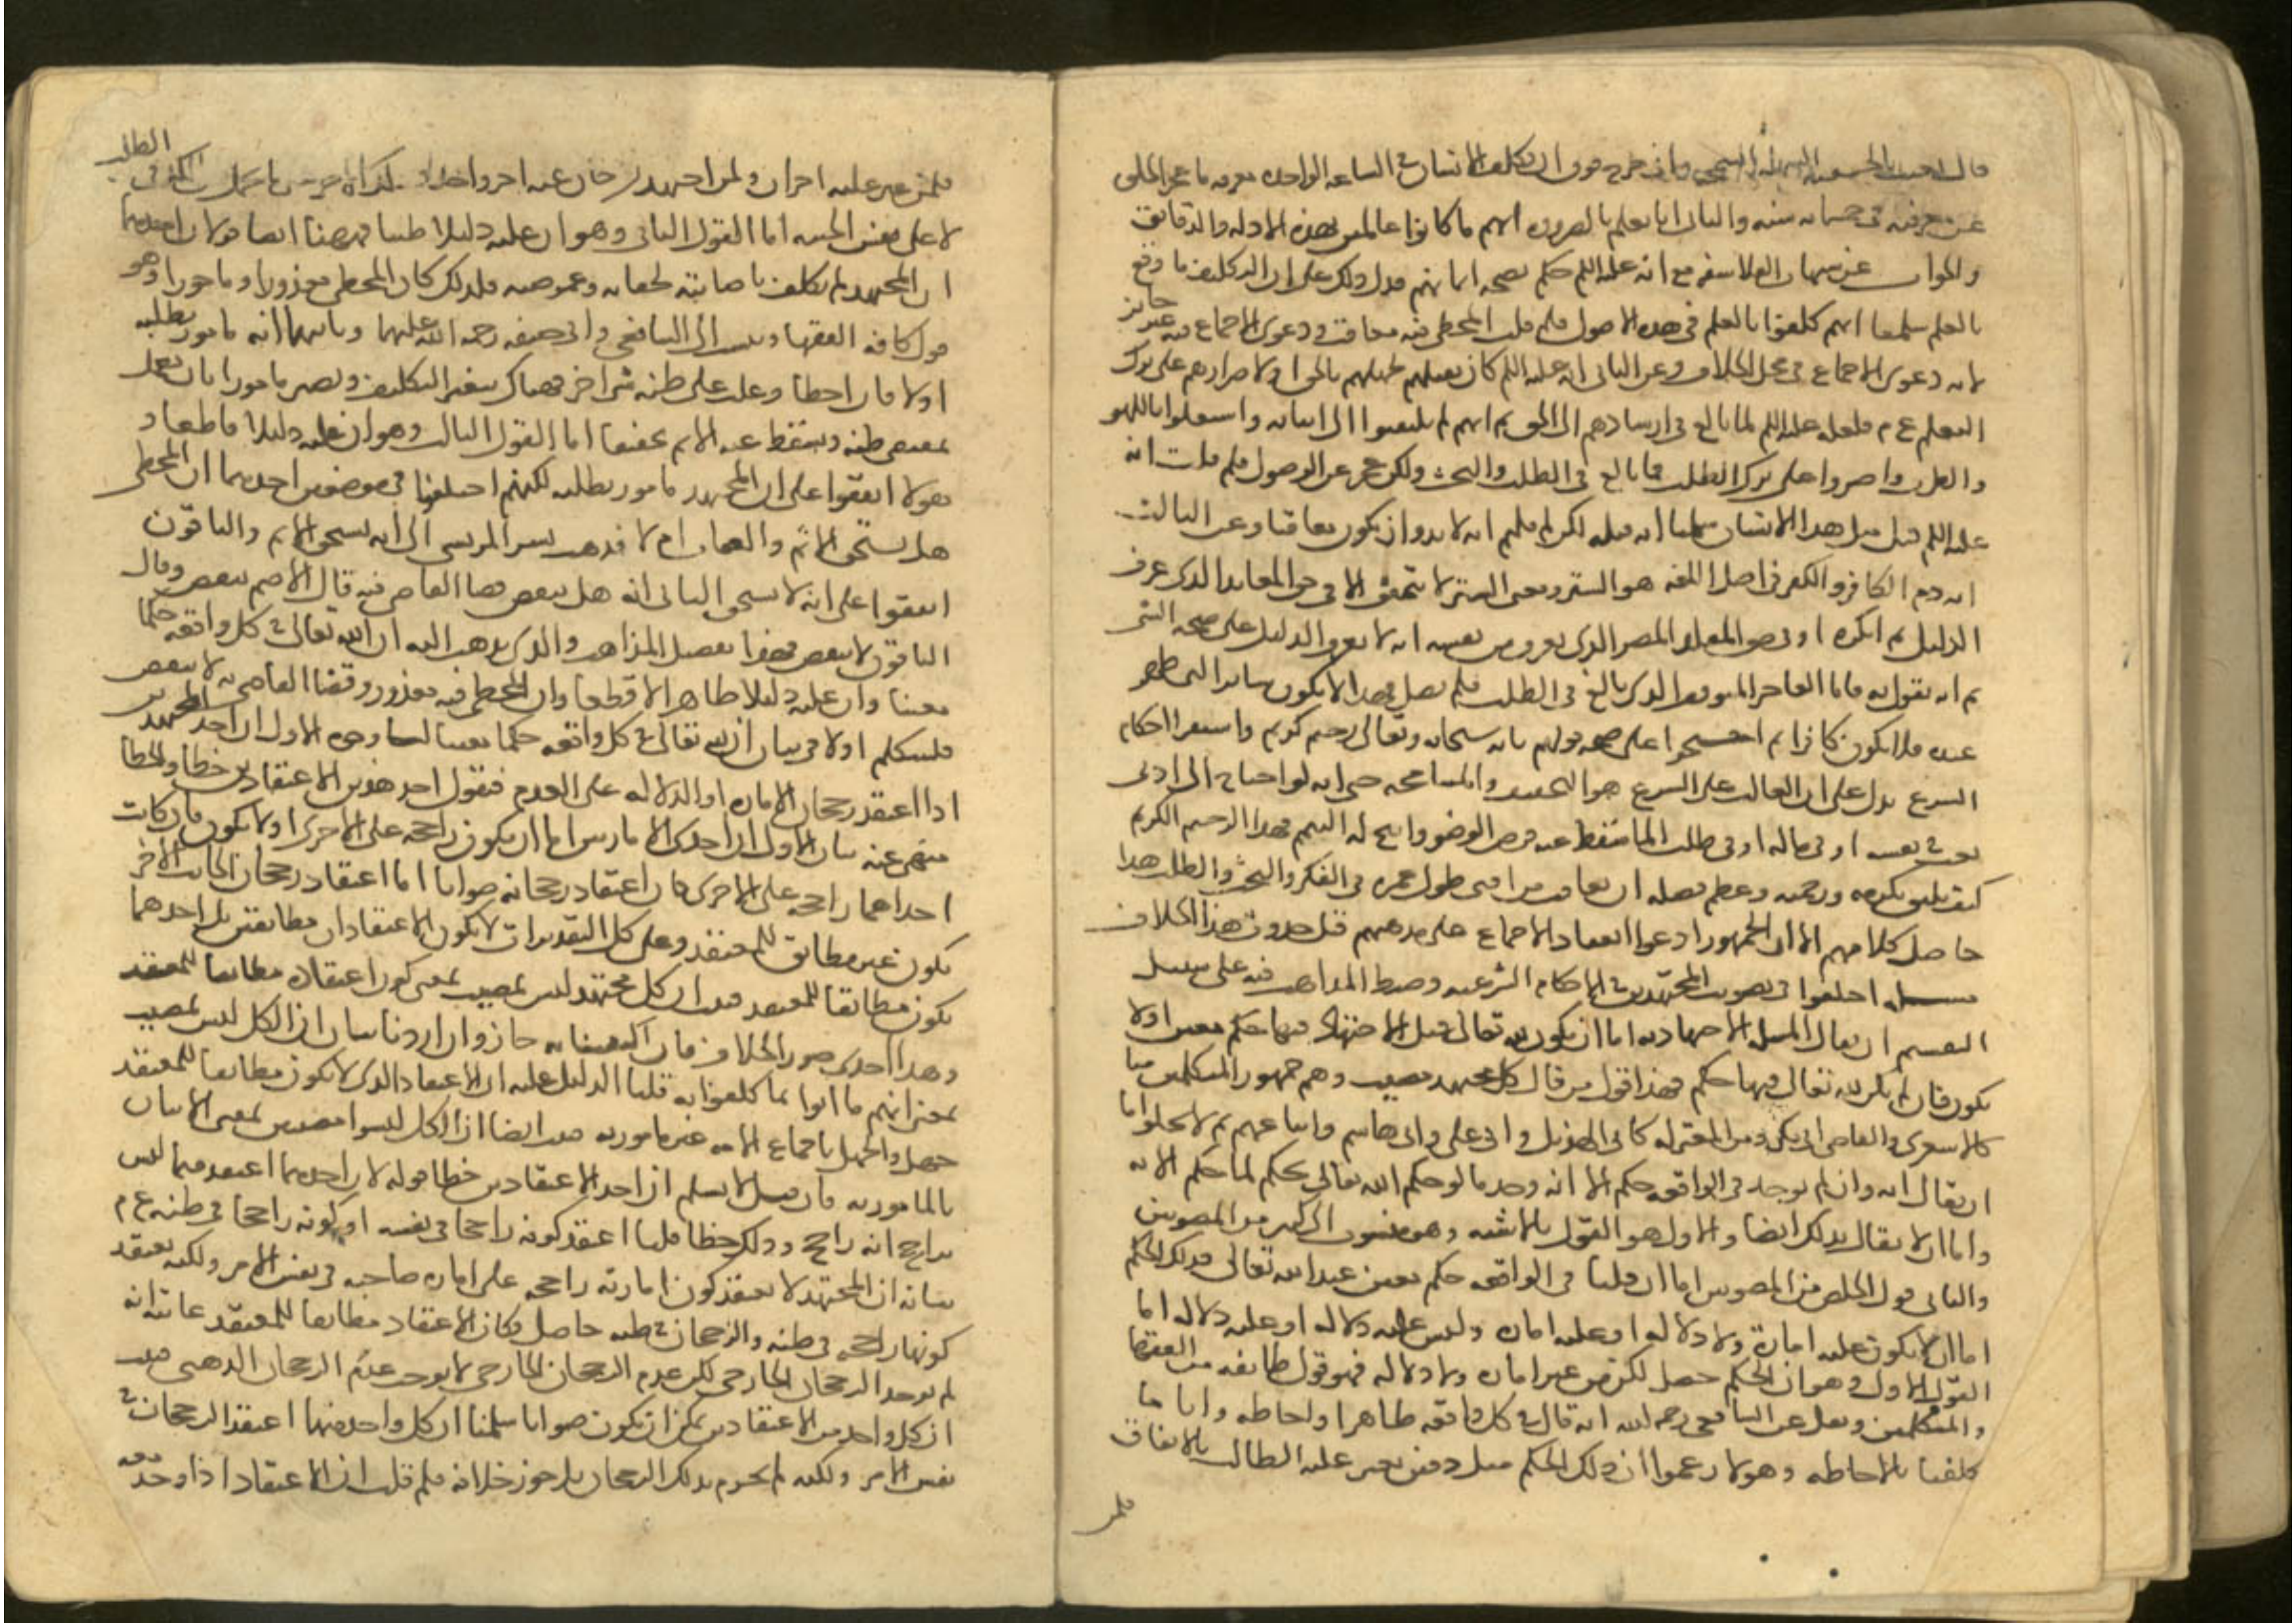 قال بعثت بالحنيفية السهلة السمحة وأي حرج فوق أن يكلف الإنسان في الساعة الواحدة معرفة ما عجز الخلق
عن معرفته في خمسمائة سنة والثاني أنا نعلم بالضرورة أنهم ما كانوا عالمين بهذه الأدلة والدقائق
والجواب عن شبهات الفلاسفة مع أنه عليه السلم حكم بصحة إيمانهم فدل ذلك على أن التكليف ما وقع
بالعلم سلمنا أنهم كلفوا بالعلم في هذه الأصول فلم قلت المخطئ فيه معاقب ودعوى الإجماع فيه غير جائز
لأنه دعوى الإجماع في محل الخلاف وعن الثاني أنه عليه السلم كان يقتلهم لجهلهم بالحق أو لإصرارهم على ترك
التعلم ع م فلعله عليه السلم لما بالغ في إرشادهم إلى الحق ثم إنهم لم يلتفتوا إلى بيانه واشتغلوا باللهو
واللعب وأصروا على ترك الطلب فما بالغ في الطلب والبحث ولكن عجز عن الوصول فلم قلت إنه
عليه السلم قتل مثل هذا الإنسان سلمنا أنه قتله لكن لم قلتم إنه لا بد وأن يكون معاقبا وعن الثالث
أنه ذم الكافر والكفر في أصل اللغة هو الستر ومعنى الستر لا يتحقق إلا في حق المعاند الذي عرف
الدليل ثم أنكره أو في حق المقلد المصر الذي يعرف من نفسه أنه لا يعرف الدليل على صحة الشيء
ثم إنه يقول به فأما العاجز المتوقف الذي بالغ في الطلب فلم يصل فهذا لا يكون ساترا لما ظهر
عنده فلا يكون كافرا ثم احتجوا على صحة قولهم بأنه سبحانه وتعالى رحيم كريم واستقراء أحكام
الشرع يدل على أن الغالب على الشرع هو التخفيف والمسامحة حتى أنه لو احتاج إلى أدنى
تعب في نفسه أو في ماله أو في طلب الماء سقط عنه فرض الوضوء وأبيح له التيمم فهذا الرحيم الكريم
كيف يليق بكرمه ورحمته وعظيم فضله أن يعاقب من أفنى طول عمره في الفكر والبحث والطلب هذا
حاصل كلامهم إلا أن الجمهور ادعوا انعقاد الإجماع على مذهبهم قبل حدوث هذا الخلاف
مسئلة اختلفوا في تصويب المجتهدين في الأحكام الشرعية وضبط المذاهب فيه على سبيل
التقسيم أن يقال المسئلة الاجتهادية إما أن يكون لله تعالى قبل الاجتهاد فيها حكم معين أو لا
يكون فإن لم يكن لله تعالى فيها حكم فهذا قول من قال كل مجتهد مصيب وهم جمهور المتكلمين منا
كالأشعري والقاضي أبي بكر ومن المعتزلة كأبي الهذيل وأبي علي وأبي هاشم وأتباعهم ثم لا يخلوا إما
أن يقال إنه وإن لم يوجد في الواقعة حكم إلا أنه وجد ما لو حكم الله تعالى بحكم لما حكم إلا به
وإما أن لا يقال بذلك أيضا والأول هو القول بالأشبه وهو منسوب إلى كثير من المصوبين
والثاني قول الخلص من المصوبين أما إن قلنا في الواقعة حكم معين عند الله تعالى فذلك الحكم
إما أن لا يكون عليه أمارة ولا دلالة أو عليه أمارة وليس عليه دلالة أو عليه دلالة أما
القول الأول وهو أن الحكم حصل لكن من غير أمارة ولا دلالة فهو قول طائفة من الفقها
والمتكلمين ونقل عن الشافعي رحمه الله أنه قال في كل واقعة ظاهرا وإحاطة وأنا ما
كلفنا بالإحاطة وهولا زعموا أن ذلك الحكم مثل دفين يعثر عليه الطالب بالاتفاق
فلمن
فلمن عثر عليه أجران ولمن اجتهد ثم خاب عنه أجر واحد
الطلب
لا على نفس الخيبة أما القول الثاني وهو أن عليه دليلا ظنيا فههنا أيضا قولان أحدهما
أن المجتهد لم يكلف بإصابته لخفائه وغموضه فلذلك كان المخطئ معذورا ومأجورا وهو
قول كافة الفقها وينسب إلى الشافعي وأبي حنيفة رحمة الله عليهما وثانيهما أنه مأمور بطلبه
أولا فإن أخطأ وغلب على ظنه شيء آخر فهناك يتغير التكليف ويصير مأمورا بأن يعمل
بمقتضى ظنه ويسقط عنه الإثم تخفيفا أما القول الثالث وهو أن عليه دليلا قاطعا و
هولا اتفقوا على أن المجتهد مأمور بطلبه لكنهم اختلفوا في موضعين أحدهما أن المخطئ
هل يستحق الإثم والعقاب أم لا فذهب بشر المريسي إلى أنه يستحق الإثم والباقون
اتفقوا على أنه لا يستحق الثاني أنه هل ينقض قضاء القاضي فيه قال الأصم ينقض وقال
الباقون لا ينقض فهذا تفصيل المذاهب والذي نذهب إليه أن لله تعالى في كل واقعة حكما
معينا وأن عليه دليلا ظاهرا لا قطعا وأن المخطئ فيه معذور وقضاء القاضي به لا ينقض
فلنتكلم أولا في بيان أن لله تعالى في كل واقعة حكما معينا لنا وجوه الأول أن أحد المجتهدين
إذا اعتقد رجحان الأمارة أو الدلالة على العدم فنقول أحد هذين الاعتقادين خطأ والخطأ
منهي عنه بيان الأول أن إحدى الأمارتين إما أن يكون راجحة على الأخرى أو لا تكون فإن كانت
إحداهما راجحة على الأخرى كان اعتقاد رجحانه صوابا أما اعتقاد رجحان الجانب الآخر
يكون غير مطابق للمعتقد وعلى كل التقديرات لا يكون الاعتقادان مطابقين بل أحدهما
يكون مطابقا للمعتقد فثبت أن كل مجتهد ليس بمصيب بمعنى كون اعتقاده مطابقا للمعتقد
وهذا إحدى صور الخلاف فإن اكتفينا به جاز وإن أردنا بيان أن الكل ليس بمصيب
بمعنى أنهم ما أتوا بما كلفوا به قلنا الدليل عليه أن الاعتقاد الذي لا يكون مطابقا للمعتقد
جهل والجهل بإجماع الأمة غير مأمور به فثبت أيضا أن الكل ليسوا مصيبين بمعنى الإتيان
بالمأمور به فإن قيل لا نسلم أن أحد الاعتقادين خطأ قوله لأن أحدهما اعتقد فيما ليس
براجح أنه راجح وذلك خطأ قلنا اعتقد كونه راجحا في نفسه أو كونه راجحا في ظنه ع م
بيانه أن المجتهد لا يعتقد كون أمارته راجحة على أمارة صاحبه في نفس الأمر ولكنه يعتقد
كونها راجحة في ظنه والرجحان في ظنه حاصل فكان الاعتقاد مطابقا للمعتقد غايته أنه
لم يوجد الرجحان الخارجي لكن عدم الرجحان الخارجي لا يوجب عدم الرجحان الذهني فثبت
أن كل واحد من الاعتقادين يمكن أن يكون صوابا سلمنا أن كل واحد منهما اعتقد الرجحان في
نفس الأمر ولكنه لم يجزم بذلك الرجحان بل جوز خلافه فلم قلت أن الاعتقاد إذا وجد معه